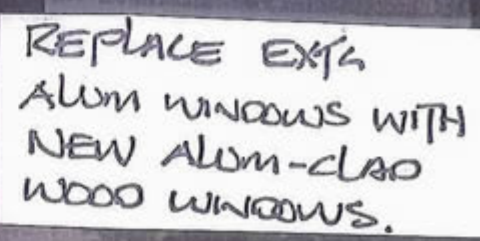 REPLACE EXTG
ALUM WINDOWS WITH
NEW ALUM-CLAD
WOOD WINDOWS.